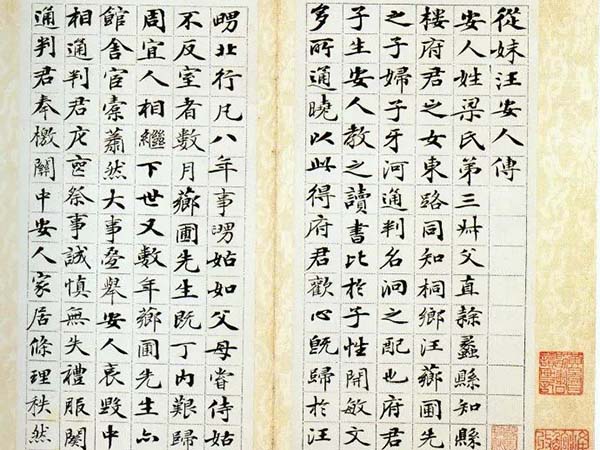 從妹汪安人傳
安人姓梁氏第三叔父直隸蠡縣知縣
楼府君之女東路同知桐鄉汪薌圃先
之子婦子牙河通判名涧之配也府君
子生安人教之讀書比於子性開敏文
多所通曉以此得府君歡心既歸於汪
舅北行凡八年事舅姑如父母嘗侍姑
不反室者數月薌圃先生既丁內艱歸
周宜人相繼下世又數年薌圃先生亦
館舍宦槖蕭然大事壘舉安人哀毀中
相通判君庀喪祭事誠慎無失禮服闋
通判君奉檄關中安人家居條理秩然